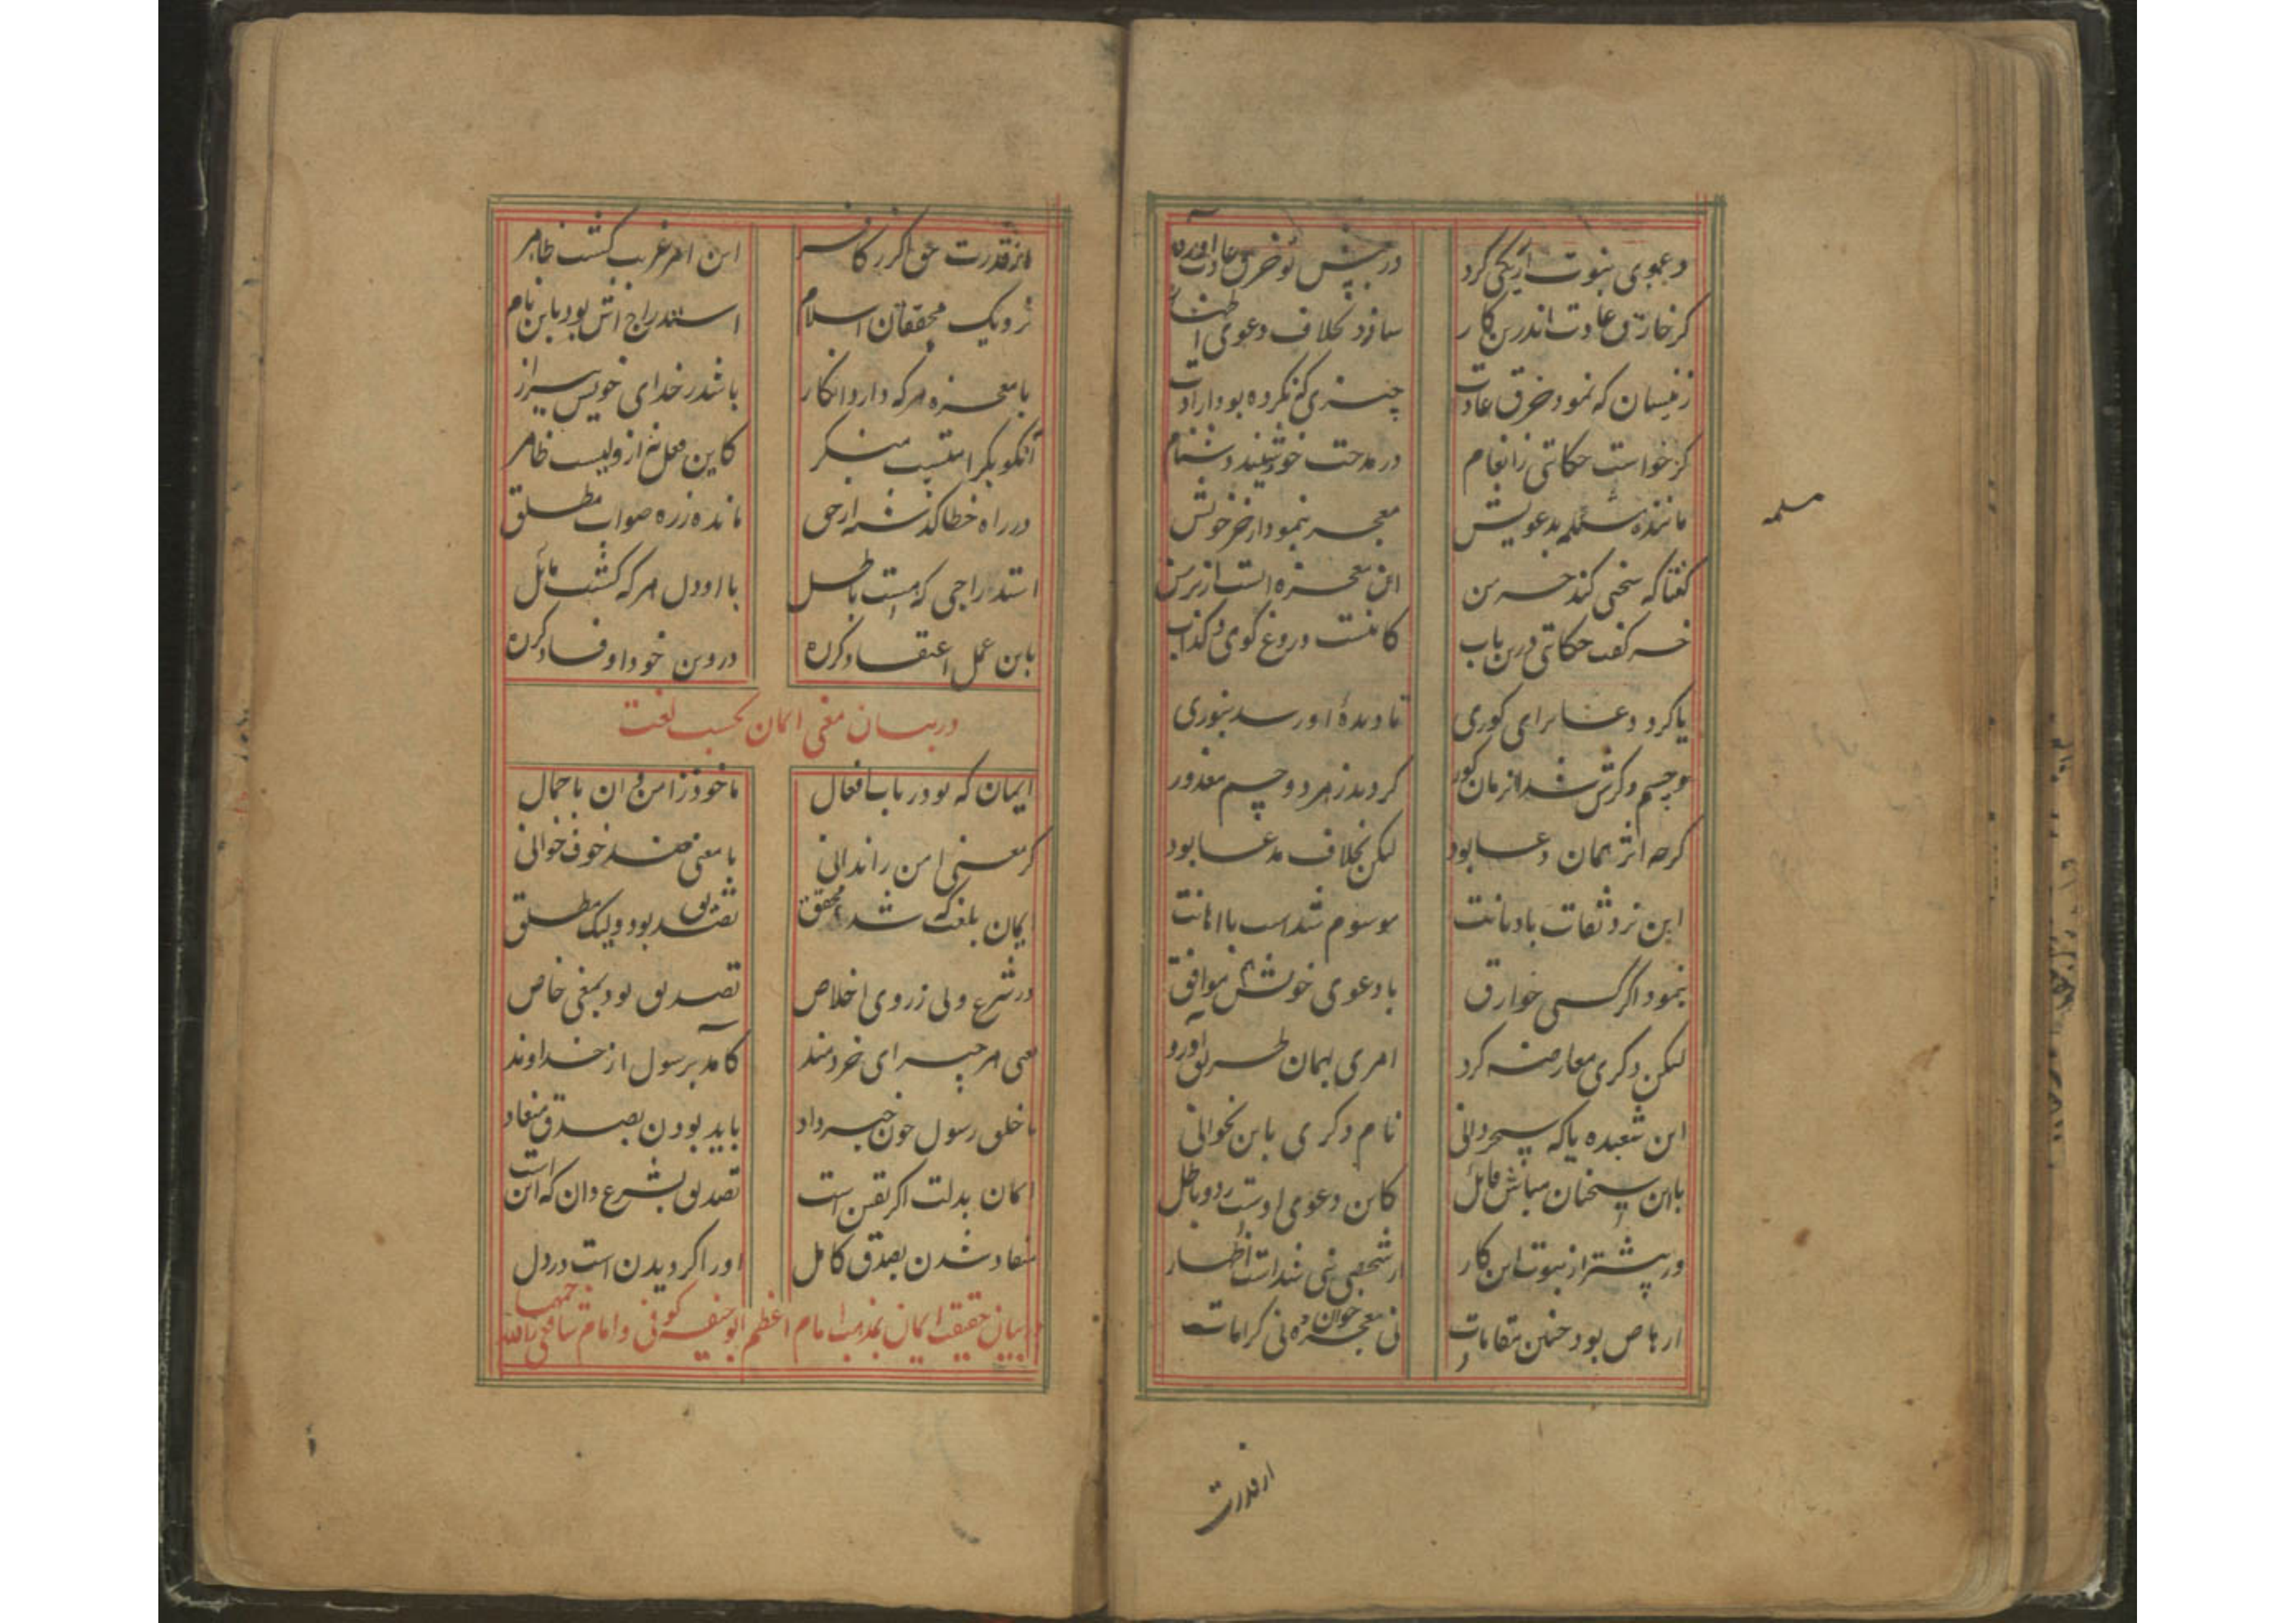 دعوی نبوت ار یکی کرد در پیش تو خرق عادت آورد
کر خارق عادت اندرین کار سازد بخلاف دعوی اظهار
زینسان که نمود خرق عادت چیزی که نکرده بود ارادت
کز خواست حکایتی ز انعام در مدحت خود شنید دشنام
مسلمه
ماننده مسلمه بدعویش معجز بنمود از خر خویش
گفتا که سخن کند خر من این معجزه است از بر من
خر گفت حکایتی درین باب کاینست دروغ گوی و کذاب
یا کرد دعا برای کوری تا دیده او رسد بنوری
کردید ز هر دو چشم معذور
کرچه اثر همان دعا بود لیکن بخلاف مدعا بود
این نزد ثقات با دیانت موسوم شد است با اهانت
بنمود اکر کسی خوارق با دعوی خویشتن موافق
لیکن دکری معارضه کرد امری بهمان طریق آورد
این شعبده یا که سحر دانی نام دکری باین نخوانی
با این سخنان مباش قایل کاین دعوی اوست رد و باطل
ور پیشتر از نبوت این کار از شخص نبی شد است اظهار
ارهاص بود چنین مقامات نی معجزه خوان و نی کرامات
از قدرت
از قدرت حق اکر ز کافر این امر غریب کشت ظاهر
نزدیک محققان اسلام استدراج اش بود باین نام
با معجزه هر که دارد انکار باشد ز خدای خویش بیزار
کاین فعل نه از ولیست ظاهر
در راه خطا کذشته از حق مانده ز ره صواب مطلق
استدراجی که هست باطل با او دل هر که کشت مایل
باین عمل اعتقاد کرده در دین خود او فساد کرده
در بیان معنی ایمان بحسب لغت
ایمان که بود ز باب افعال ماخوذ ز امن دان باجمال
کر معنی امن را ندانی با معنی ضد خوف خوانی
ایمان بلغت که شد محقق تصدیق بود ولیک مطلق
در شرع ولی ز روی اخلاص تصدیق بود بمعنی خاص
یعنی هر چیز ای خردمند کامد برسول از خداوند
با خلق رسول چون خبر داد باید بودن بصدق منقاد
ایمان بدلت اکر یقین است تصدیق بشرع دان که این است
منقاد شدن بصدق کامل او را کرویدن است در دل
در بیان حقیقت ایمان بمذهب امام اعظم ابو حنیفه کوفی و امام شافعی رحمهما الله